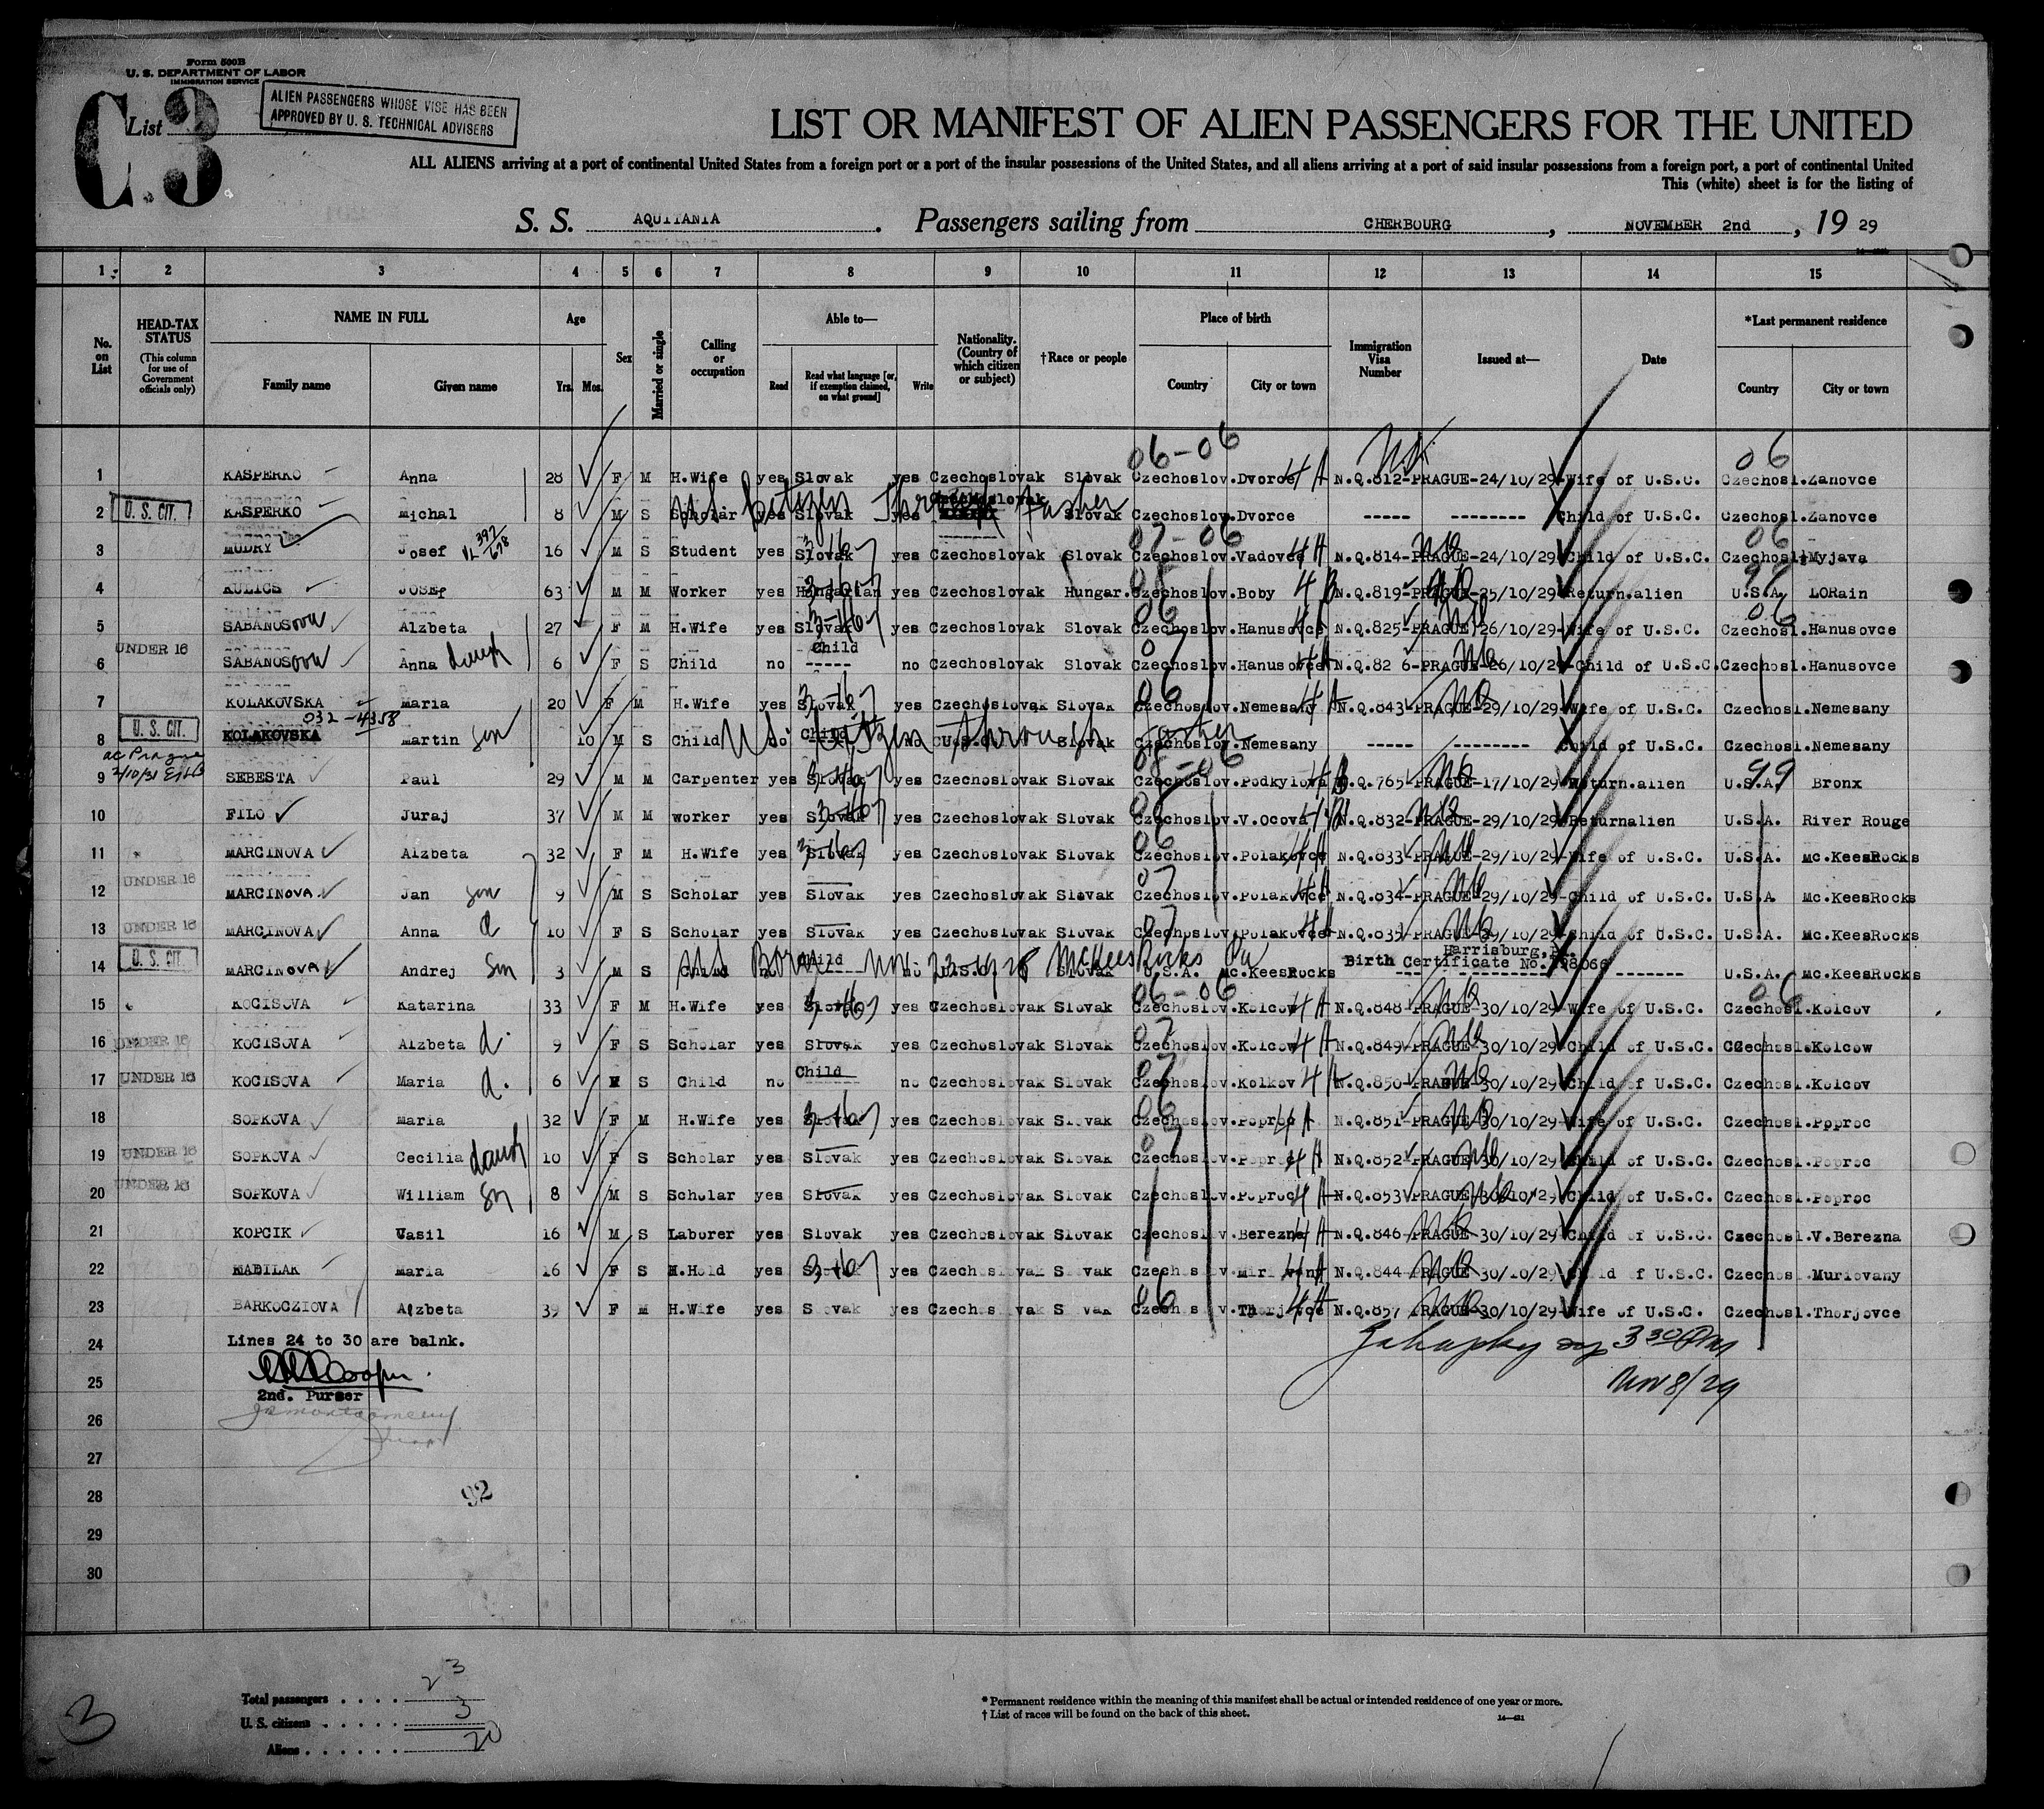 Form 500B
U. S. DEPARTMENT OF LABOR
IMMIGRATION SERVICE
List C.3
ALIEN PASSENGERS WHOSE VISE HAS BEEN
APPROVED BY U. S. TECHNICAL ADVISERS
LIST OR MANIFEST OF ALIEN PASSENGERS FOR THE UNITED
ALL ALIENS arriving at a port of continental United States from a foreign port or a port of the insular possessions of the United States, and all aliens arriving at a port of said insular possessions from a foreign port, a port of continental United
This (white) sheet is for the listing of
S. S. AQUITANIA . Passengers sailing from CHERBOURG , NOVEMBER 2nd , 19 29
1 2 3 4 5 6 7 8 9 10 11 12 13 14 15
No. on List
HEAD-TAX STATUS (This column for use of Government officials only)
NAME IN FULL Family name Given name
Age Yrs. Mos.
Sex
Married or single
Calling or occupation
Able to— Read Read what language [or, if exemption claimed, on what ground] Write
Nationality. (Country of which citizen or subject)
†Race or people
Place of birth Country City or town
Immigration Visa Number
Issued at—
Date
*Last permanent residence Country City or town
06-06 06
1 KASPERKO Anna 28 F M H.Wife yes Slovak yes Czechoslovak Slovak Czechoslov.Dvorce 4A N.Q.812-PRAGUE-24/10/29-Wife of U.S.C. Czechosl.Zanovce
U.S. Citizen Through Father
2 U. S. CIT. KASPERKO Michal 8 M S Scholar yes Slovak yes Czechoslovak Slovak Czechoslov.Dvorce ----- -------- Child of U.S.C. Czechosl.Zanovce
07-06 06
3 MUDRY Josef 16 M S Student yes Slovak yes Czechoslovak Slovak Czechoslov.Vadovce N.Q.814-PRAGUE-24/10/29-Child of U.S.C. Czechosl.Myjava
4 KULICS JOSEF 63 M M Worker yes Hungarian yes Czechoslovak Hungar. Czechoslov.Boby N.Q.819-PRAGUE-25/10/29-Return.alien U.S.A. LORain
5 SABANOSOVA Alzbeta 27 F M H.Wife yes Slovak yes Czechoslovak Slovak Czechoslov.Hanusovce N.Q.825-PRAGUE-26/10/29-Wife of U.S.C. Czechosl.Hanusovce
UNDER 16
6 SABANOSOVA Anna daugh 6 F S Child no Child ----- no Czechoslovak Slovak Czechoslov.Hanusovce N.Q.82 6-PRAGUE-26/10/29-Child of U.S.C.Czechosl.Hanusovce
7 KOLAKOVSKA Maria 20 F M H.Wife yes Slovak yes Czechoslovak Slovak Czechoslov.Nemesany N.Q.843-PRAGUE-29/10/29-Wife of U.S.C. Czechosl.Nemesany
032-4358
U.S. Citizen through Father
8 U. S. CIT. KOLAKOVSKA Martin son 10 M S Child no Child no U.S.C. Slovak Czechoslov.Nemesany ----- -------- Child of U.S.C. Czechosl.Nemesany
9 SEBESTA Paul 29 M M Carpenter yes Slovak yes Czechoslovak Slovak Czechoslov.Podkylova N.Q.765-PRAGUE-17/10/29-Return.alien U.S.A. Bronx
10 FILO Juraj 37 M M worker yes Slovak yes Czechoslovak Slovak Czechoslov.V.Ocova N.Q.832-PRAGUE-29/10/29-Returnalien U.S.A. River Rouge
11 MARCINOVA Alzbeta 32 F M H.Wife yes Slovak yes Czechoslovak Slovak Czechoslov.Polakovce N.Q.833-PRAGUE-29/10/29-Wife of U.S.C. U.S.A. Mc.KeesRocks
UNDER 16
12 MARCINOVA Jan son 9 M S Scholar yes Slovak yes Czechoslovak Slovak Czechoslov.Polakovce N.Q.834-PRAGUE-29/10/29-Child of U.S.C. U.S.A. Mc.KeesRocks
13 UNDER 16 MARCINOVA Anna d 10 F S Scholar yes Slovak yes Czechoslovak Slovak Czechoslov.Polakovce N.Q.835-PRAGUE-29/10/29-Child of U.S.C. U.S.A. Mc.KeesRocks
Harrisburg,
U.S. Born McKees Rocks Pa
14 U. S. CIT. MARCINOVA Andrej son 3 M S Child no Child no U.S.C. Slovak U.S.A. Mc.KeesRocks Birth Certificate No. U.S.A. Mc.KeesRocks
06-06 06
15 KOCISOVA Katarina 33 F M H.Wife yes Slovak yes Czechoslovak Slovak Czechoslov.Kolcow N.Q.848-PRAGUE-30/10/29-Wife of U.S.C. Czechosl.Kolcov
16 UNDER 16 KOCISOVA Alzbeta d. 9 F S Scholar yes Slovak yes Czechoslovak Slovak Czechoslov.Kolcow N.Q.849-PRAGUE-30/10/29-Child of U.S.C. Czechosl.Kolcow
17 UNDER 16 KOCISOVA Maria d. 6 F S Child no Child no Czechoslovak Slovak Czechoslov.Kolkov N.Q.850-PRAGUE-30/10/29-Child of U.S.C. Czechosl.Kolcov
18 SOPKOVA Maria 32 F M H.Wife yes Slovak yes Czechoslovak Slovak Czechoslov.Poproc N.Q.851-PRAGUE-30/10/29-Wife of U.S.C. Czechosl.Poproc
19 UNDER 16 SOPKOVA Cecilia daugh 10 F S Scholar yes Slovak yes Czechoslovak Slovak Czechoslov.Poproc N.Q.852-PRAGUE-30/10/29-Child of U.S.C. Czechosl.Poproc
20 UNDER 16 SOPKOVA William Sn 8 M S Scholar yes Slovak yes Czechoslovak Slovak Czechoslov.Poproc N.Q.853-PRAGUE-30/10/29-Child of U.S.C. Czechosl.Poproc
21 KOPCIK Vasil 16 M S Laborer yes Slovak yes Czechoslovak Slovak Czechoslov.Berezna N.Q.846-PRAGUE-30/10/29-Child of U.S.C. Czechosl.V.Berezna
22 MABILAK Maria 16 F S H.Hold yes Slovak yes Czechoslovak Slovak Czechoslov. N.Q.844-PRAGUE-30/10/29-Child of U.S.C. Czechosl.Muriovany
23 BARKOCZIOVA Alzbeta 39 F M H.Wife yes Slovak yes Czechoslovak Slovak Czechoslov.Thorjovce N.Q.857 PRAGUE-30/10/29-Wife of U.S.C. Czechosl.Thorjovce
24 Lines 24 to 30 are balnk. 3 30 PM
25 Nov 8/29
2nd. Purser
26
27
28 92
29
30
Total passengers . . . . 23
U. S. citizens . . . . . 3
Aliens . . . . . . 20
3
* Permanent residence within the meaning of this manifest shall be actual or intended residence of one year or more.
† List of races will be found on the back of this sheet.